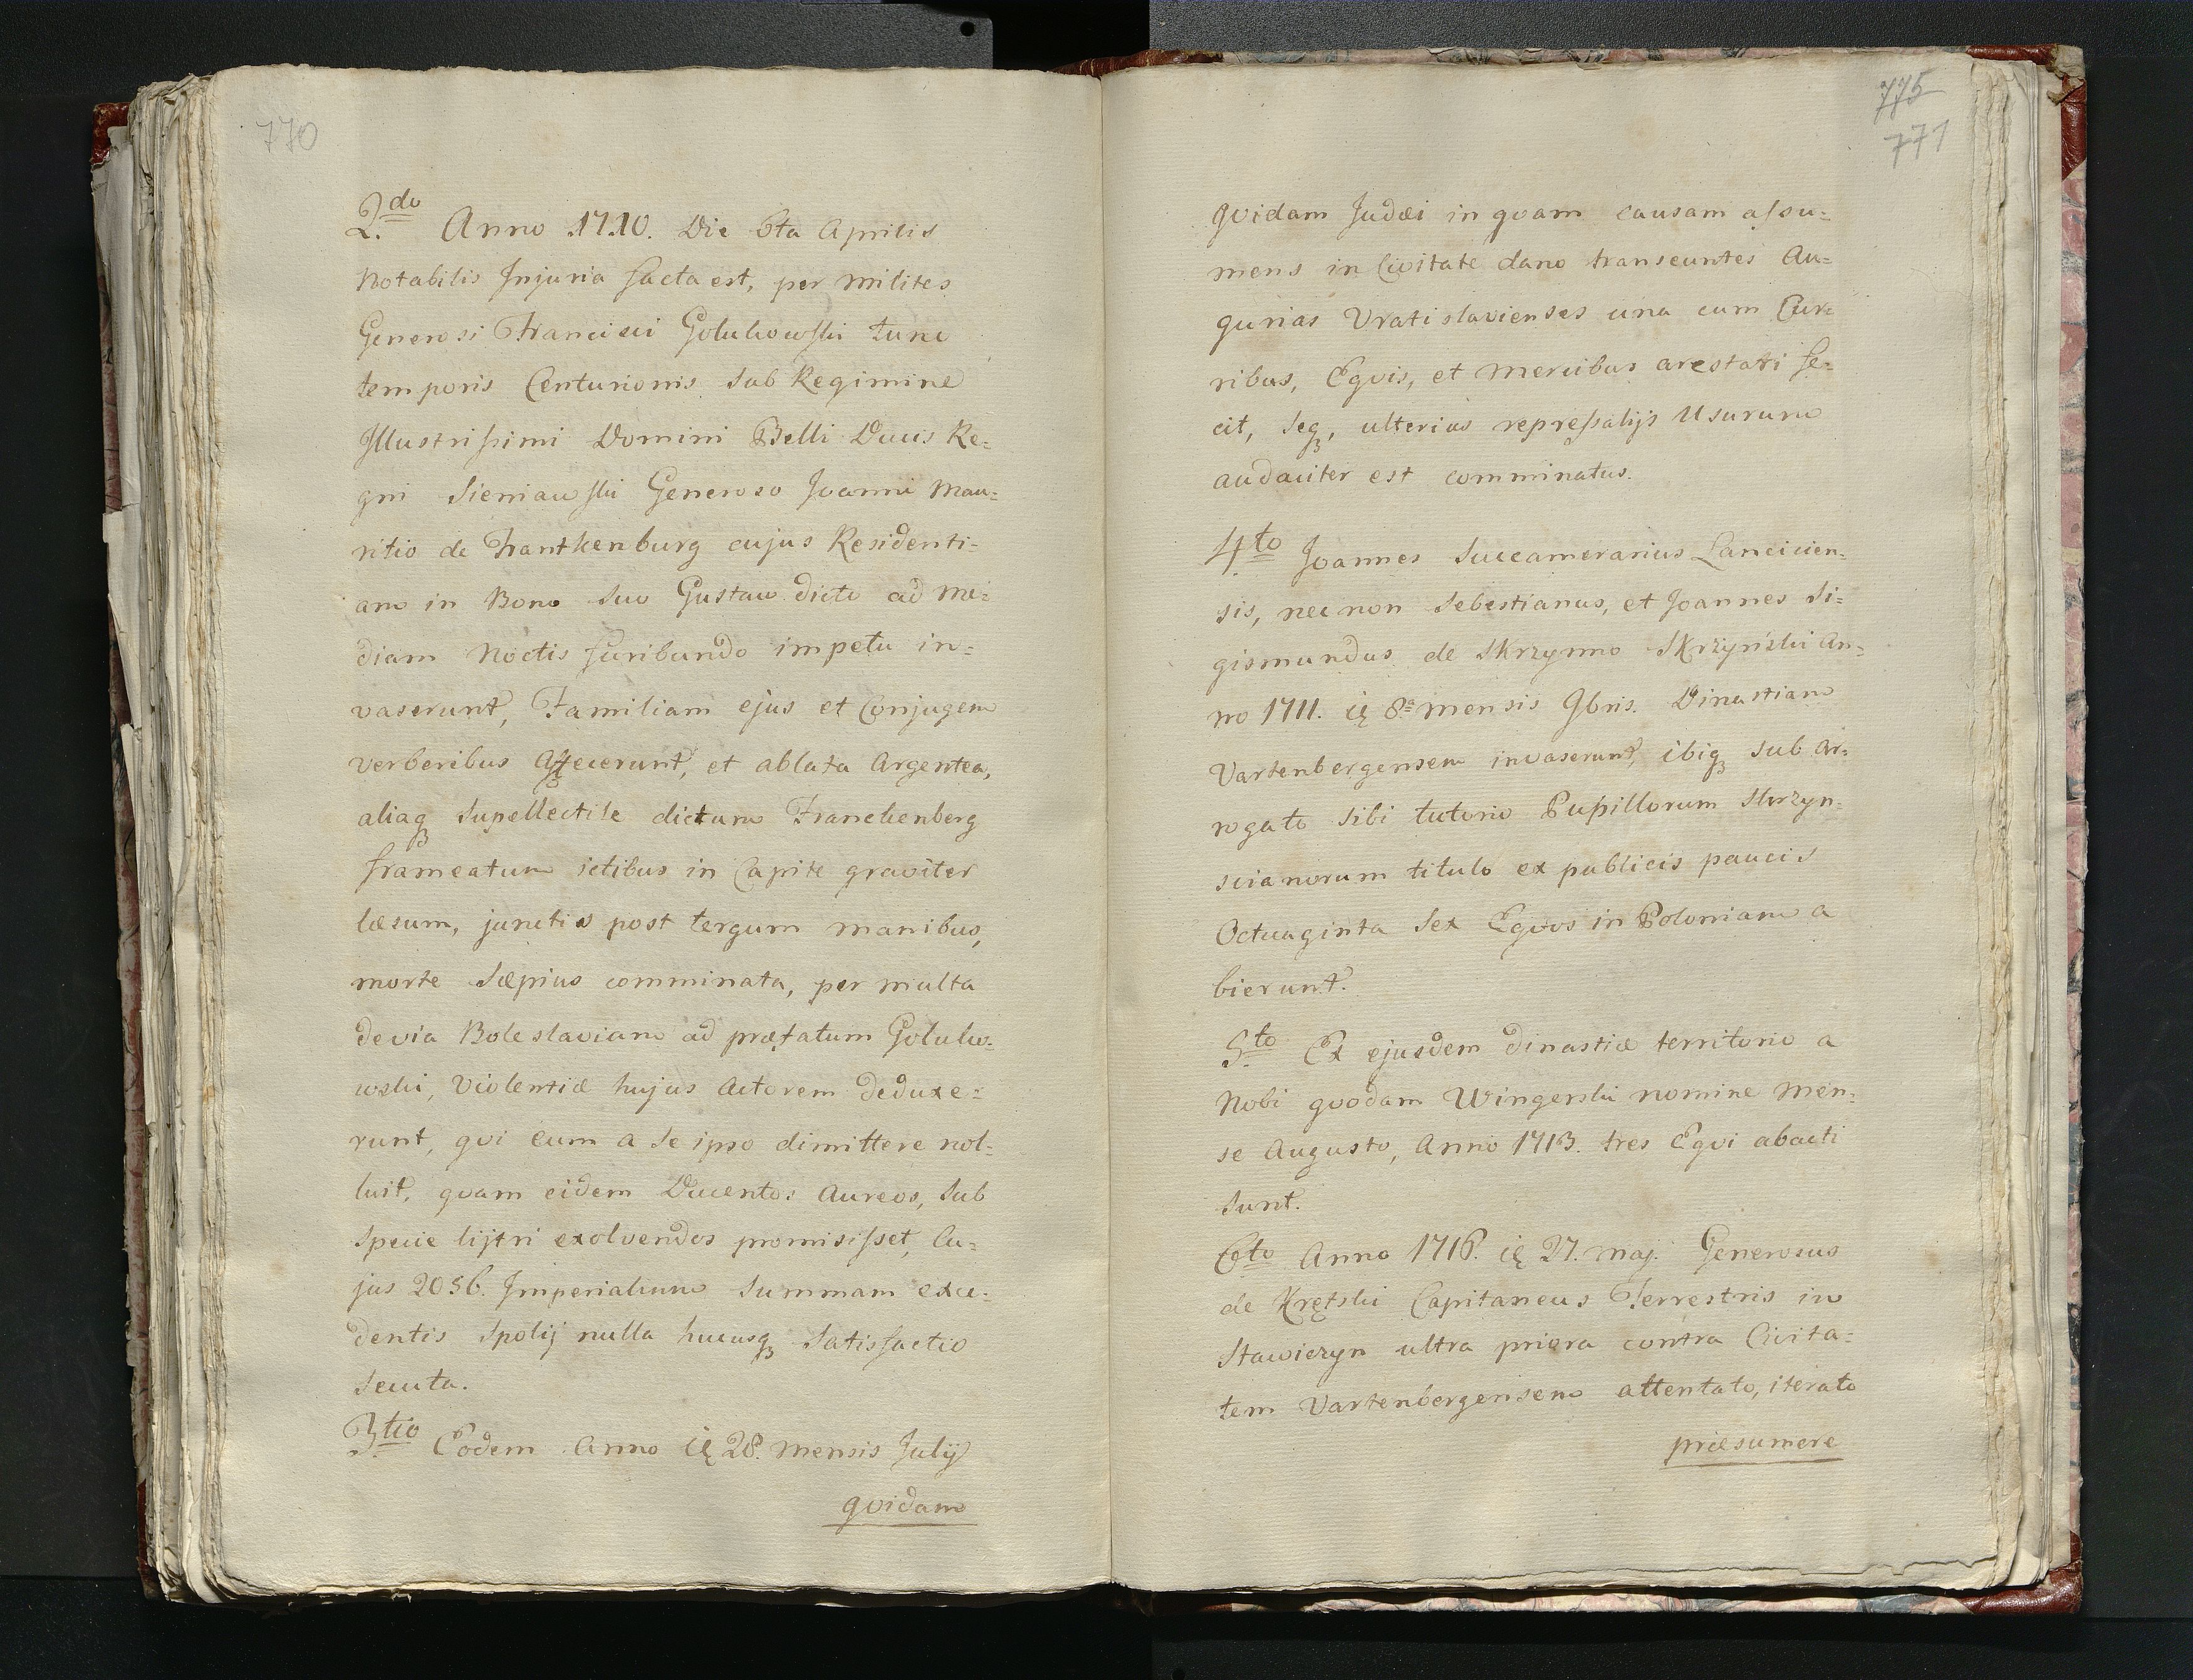 770
2do Anno 1710. Die 6ta Aprilis
Notabilis Injuria facta est, per milites
Generosi Francisci Golukowski tunc
temporis Centurionis sub Regimine
Illustrissimi Domini Belli Ducis Re=
gni Sieniawski Generoso Joanni Mau=
ritio de Frantkenburg cujus Residenti=
am in Bono suo Gustaw dicto ad me=
diam Noctis furibundo impetu in=
vaserunt, Familiam ejus et Conjugem
verberibus affecerunt, et ablata Argentea,
aliaq3 Supellectile dictum Franckenberg
frameatum ictibus in Capite graviter
læsum, junctis post tergum manibus,
morte Sæpius comminata, per multa
devia Boleslaviam ad præfatum Goluko=
wski, Violentiæ hujus Actorem deduxe=
runt, qvi eum a se ipso dimittere nol=
luit, qvam eidem Ducentos Aureos, sub
Specie lijtri exolvendos promisisset, Cu=
jus 2056. Imperialium Summam exce=
dentis Spolij nulla hucusq3 Satisfactio
Secuta.
3tio Eodem Anno ię 28. mensis Julij
qvidam
775
771
qvidam Judæi in qvam causam assu=
mens in Civitate dano transeuntes Au=
gurias Vratislavienses una cum Cur=
ribus, Eqvis, et Mercibus arestari fe=
cit, seq3, ulterius repressalijs Usurum
audaciter est comminatus.
4to Joannes Succamerarius Lancicien=
sis, nec non Sebestianus, et Joannes Si=
gismundus de Skrzynno Skrzyński An=
no 1711. ię 8a mensis 9bris. Dinastiam
Vartenbergensem invaserunt, ibiq3 sub ar=
rogato sibi tutorio Pupillorum Skrzyn=
scianorum titulo ex publicis paucis
Octuaginta Sex Eqvos in Poloniam a
bierunt.
5to Ex ejusdem dinastiæ territorio a
Nobi qvodam Wingerski nomine men=
se Augusto, Anno 1713. tres Eqvi abacti
sunt.
6to Anno 1716. ię 27. maj. Generosus
de Krętski Capitaneus Terrestris in
Stawiczyn ultra priora contra Civita=
tem Vartenbergensem attentato, iterato
præsumere